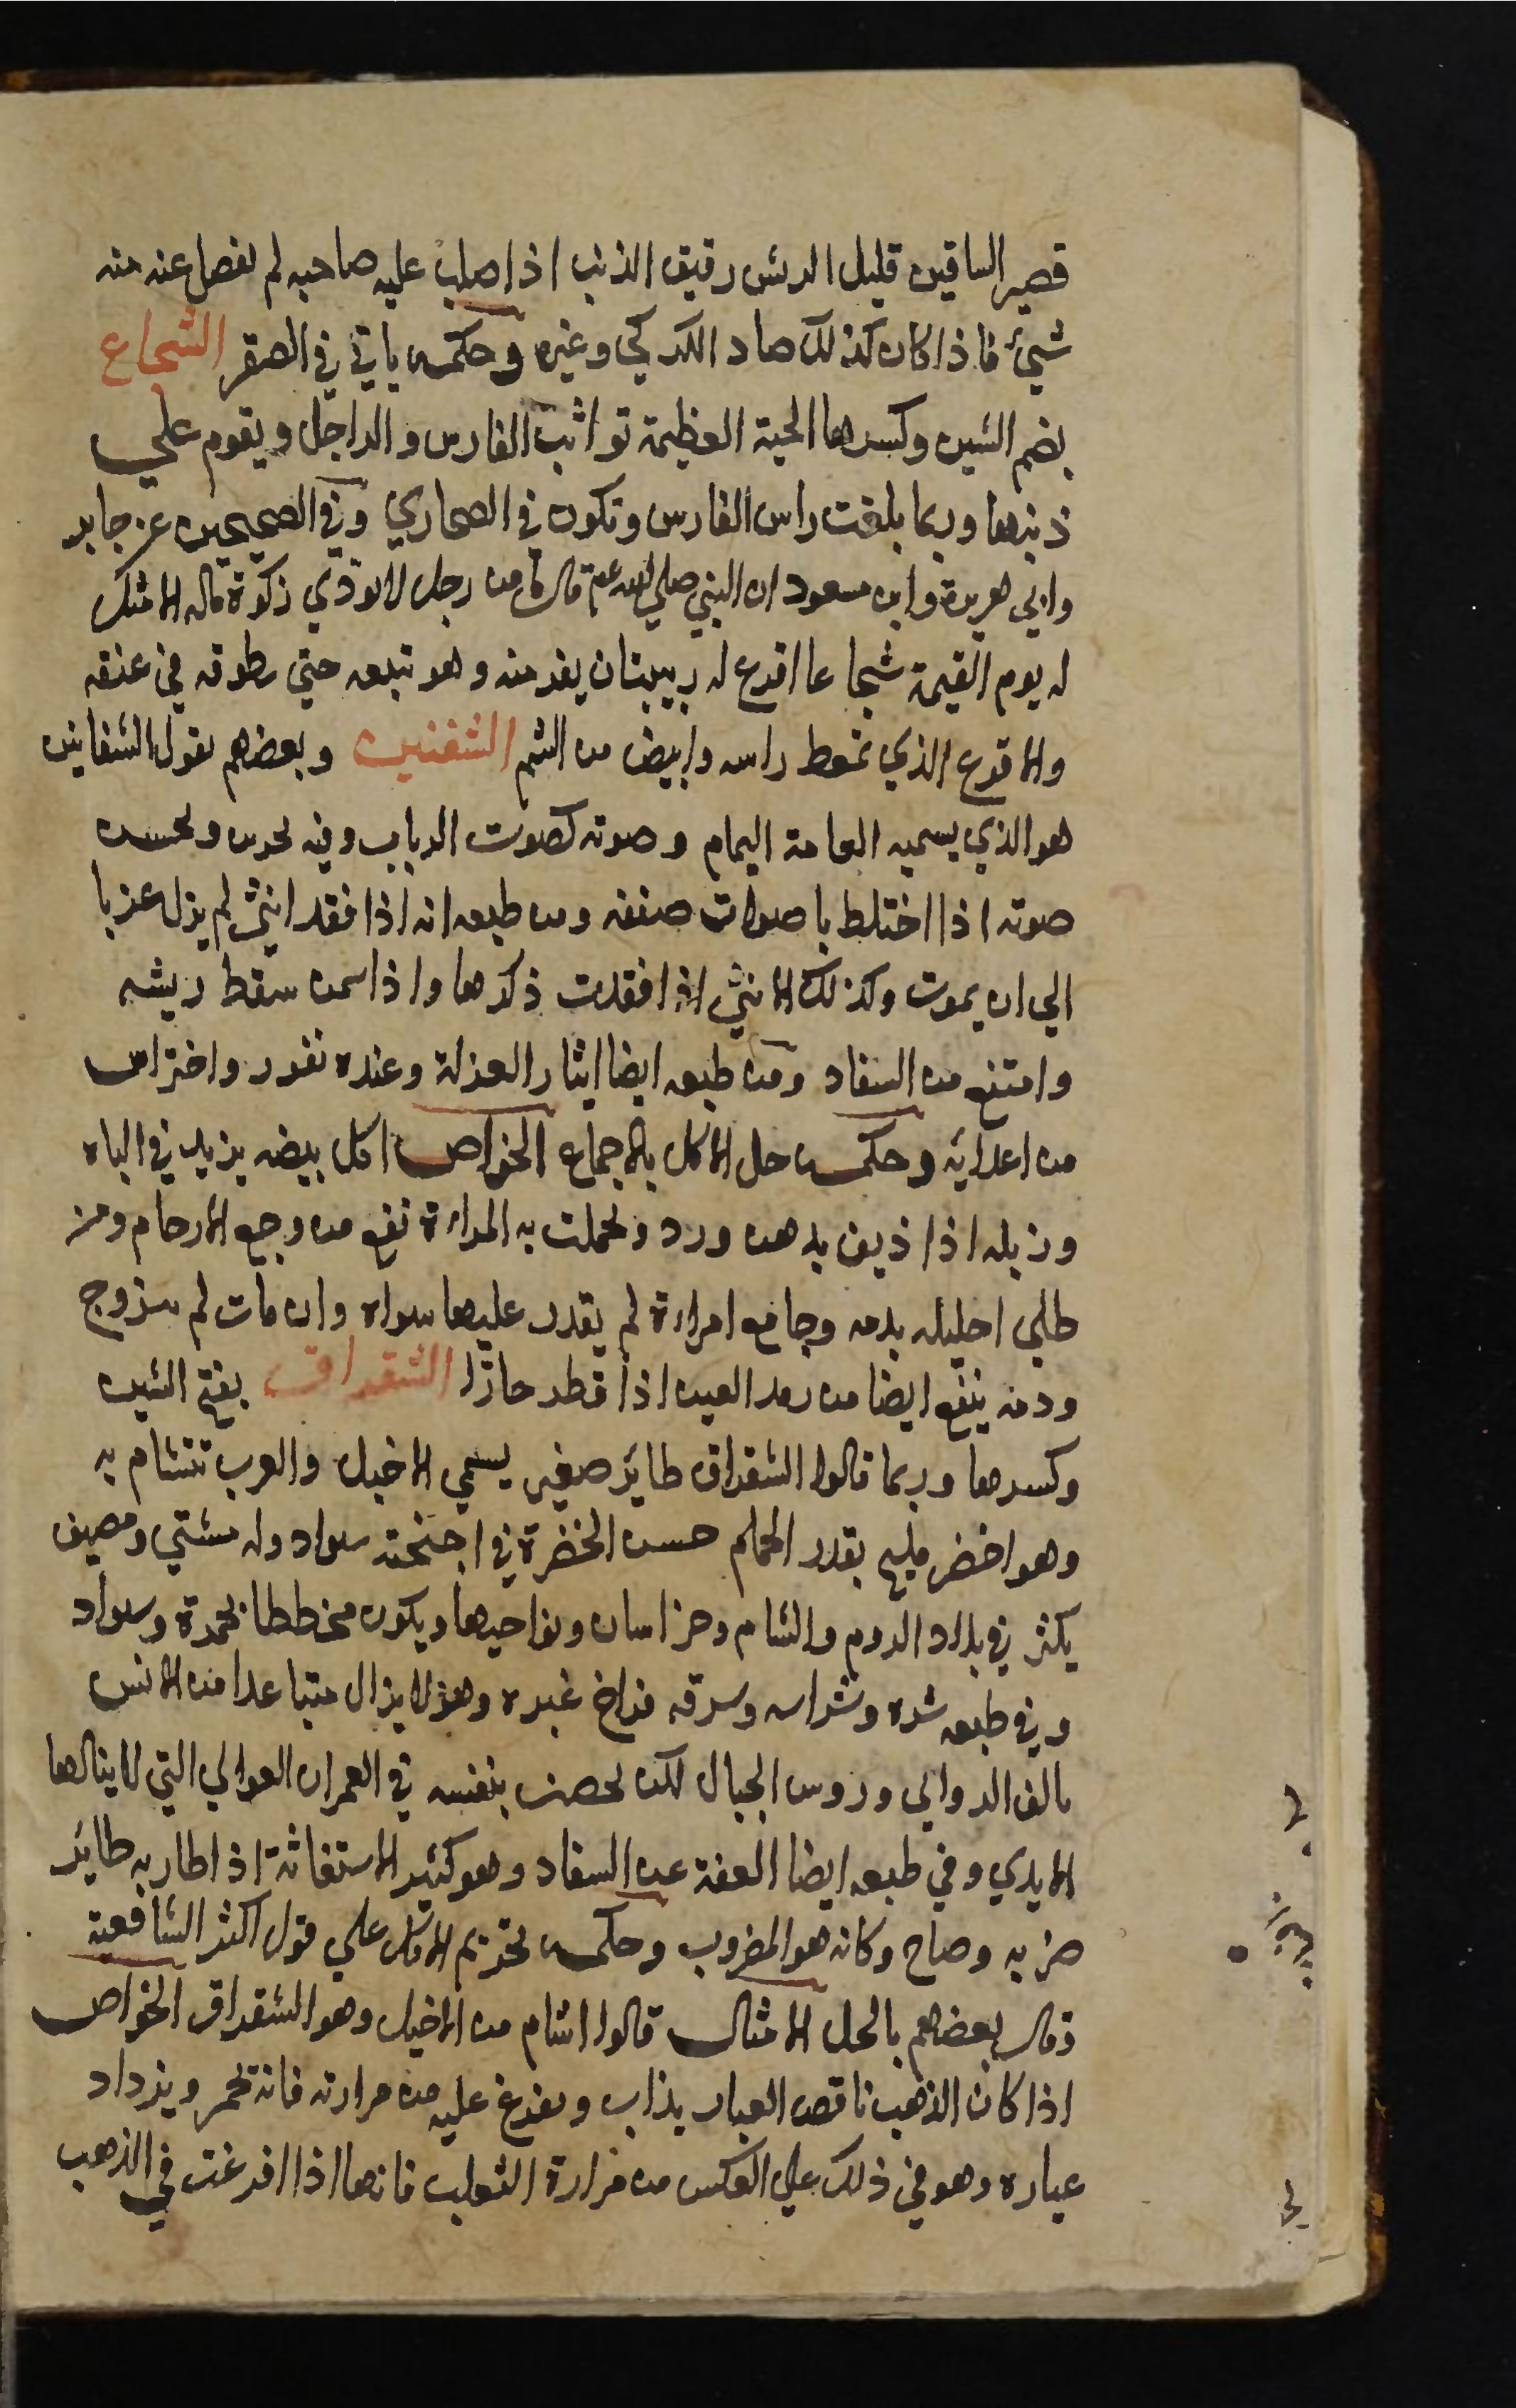 قصير الساقين قليل الريش رقيق الذنب اذا صلب عليه صاحبه لم يفصل عنه منه
شيئ فاذا كان كذلك صاد الكركي وغيره وحكمه ياتي في الصقر الشجاع
بضم الشين وكسرها الحية العظيمة تواثب الفارس والراجل ويقوم علي
ذنبها وربما بلغت راس الفارس وتكون في الصحاري وفي الصحيحين عن جابر
وابي هريرة وابن مسعود ان النبي صلي الله عم قال ما من رجل لا يودي زكوة ماله الا مثل
له يوم القيمة شجاعا اقرع له زبيبتان يفر منه وهو تبعه حتي يطوقه في عنقه
والاقرع الذي تمعط راسه وابيض من السم الشفنين وبعضهم يقول الشفانين
هو الذي يسميه العامة اليمام وصوته كصوت الرباب وفيه تحرس وتحسن
صوته اذا اختلط باصوات صنفه ومن طبعه انه اذا فقد انثي لم يزل عزبا
الي ان يموت وكذلك الانثي اذا فقدت ذكرها واذا سمن سقط ريشه
وامتنع من السفاد ومن طبعه ايضا ايثار العزلة وعنده نفور واحتراس
من اعدائه وحكمه حل الاكل بالاجماع الخواص اكل بيضه يزيد في الباه
وزبله اذا ذيف بدهن ورد وتحملت به المراة نفع من وجع الارحام ومن
طلي احليله بدمه وجامع امراة لم يقدر عليها سواه وان مات لم تتزوج
ودمه ينفع ايضا من رمد العين اذا قطر حارا الشقراق بفتح الشين
وكسرها وربما قالوا الشقراق طائر صغير يسمي الاخيل والعرب تتشام به
وهو اخضر مليح بقدر الحمام حسن الخضرة في اجنحته سواد وله مشتي ومصيف
يكثر في بلاد الروم والشام وخراسان ونواحيها ويكون مخططا بحمرة وسواد
وفي طبعه شره وشراسه وسرقه فراخ غيره وهو لا يزال متباعدا من الانس
يالف الروابي وروس الجبال لكن يحصن بنفسه في العمران العوالي التي لا ينالها
الايدي وفي طبعه ايضا العفة عن السفاد وهو كثير الاستغاثة اذا طار به طائر
ضربه وصاح وكانه هو المضروب وحكمه تحريم الاكل علي قول اكثر الشافعية
وقال بعضهم بالحل الامثال قالوا اشام من الاخيل وهو الشقراق الخواص
اذا كان الذهب ناقص العيار يذاب ويفرغ عليه من مرارته فانه يحمر ويزداد
عياره وهو في ذلك علي العكس من مرارة الثعلب فانها اذا افرغت في الذهب